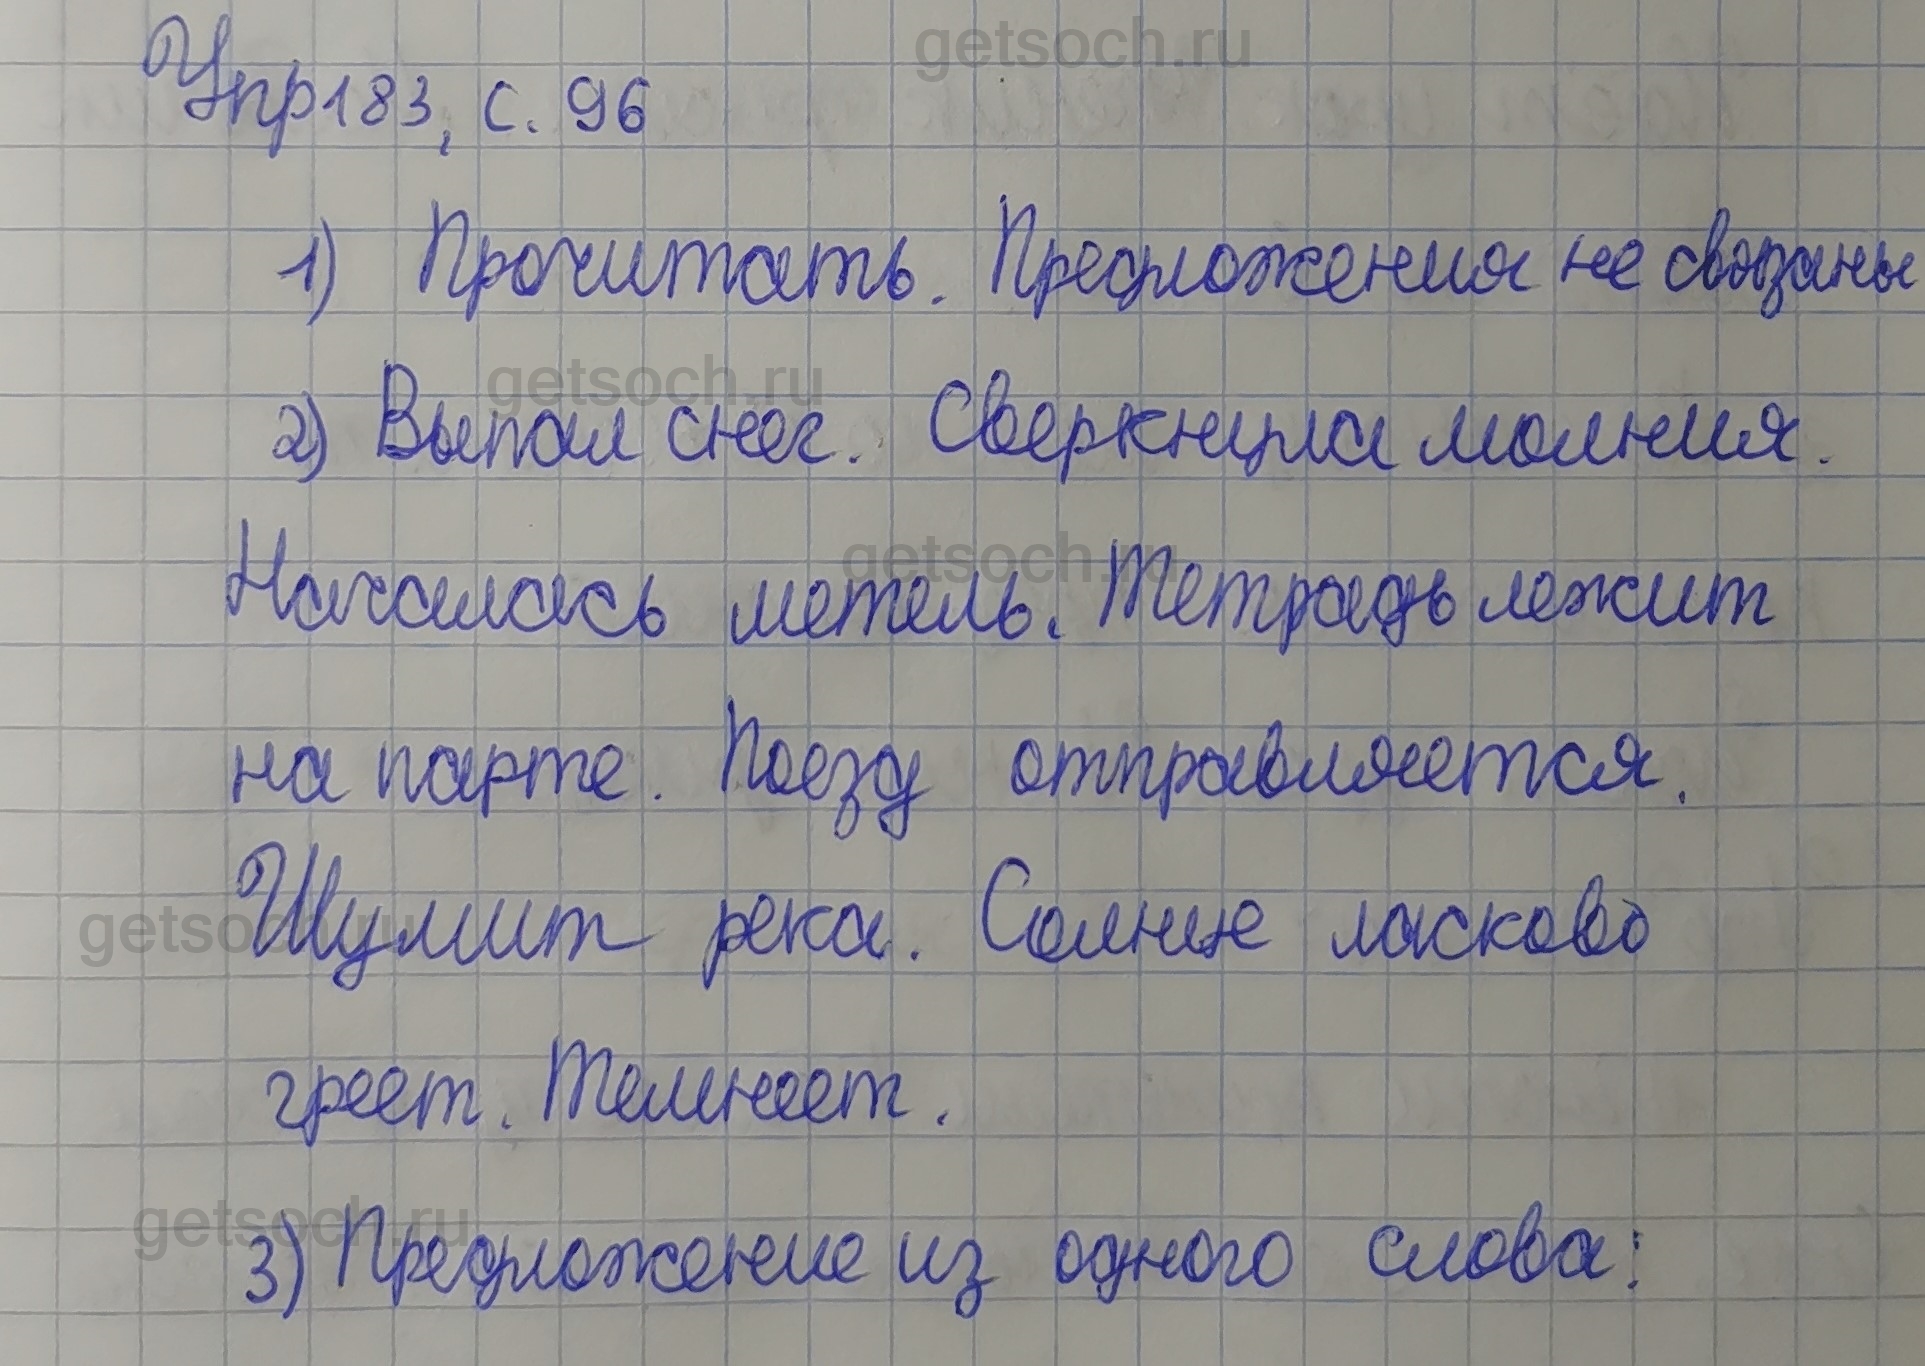 getsoch.ru
Упр 183, с. 96
1) Прочитать. Предложения не связаны
getsoch.ru
2) Выпал снег. Сверкнула молния.
getsoch.ru
Началась метель. Тетрадь лежит
на парте. Поезд отправляется.
getsoch.ru
Шумит река. Солнце ласково
греет. Темнеет.
getsoch.ru
3) Предложение из одного слова: